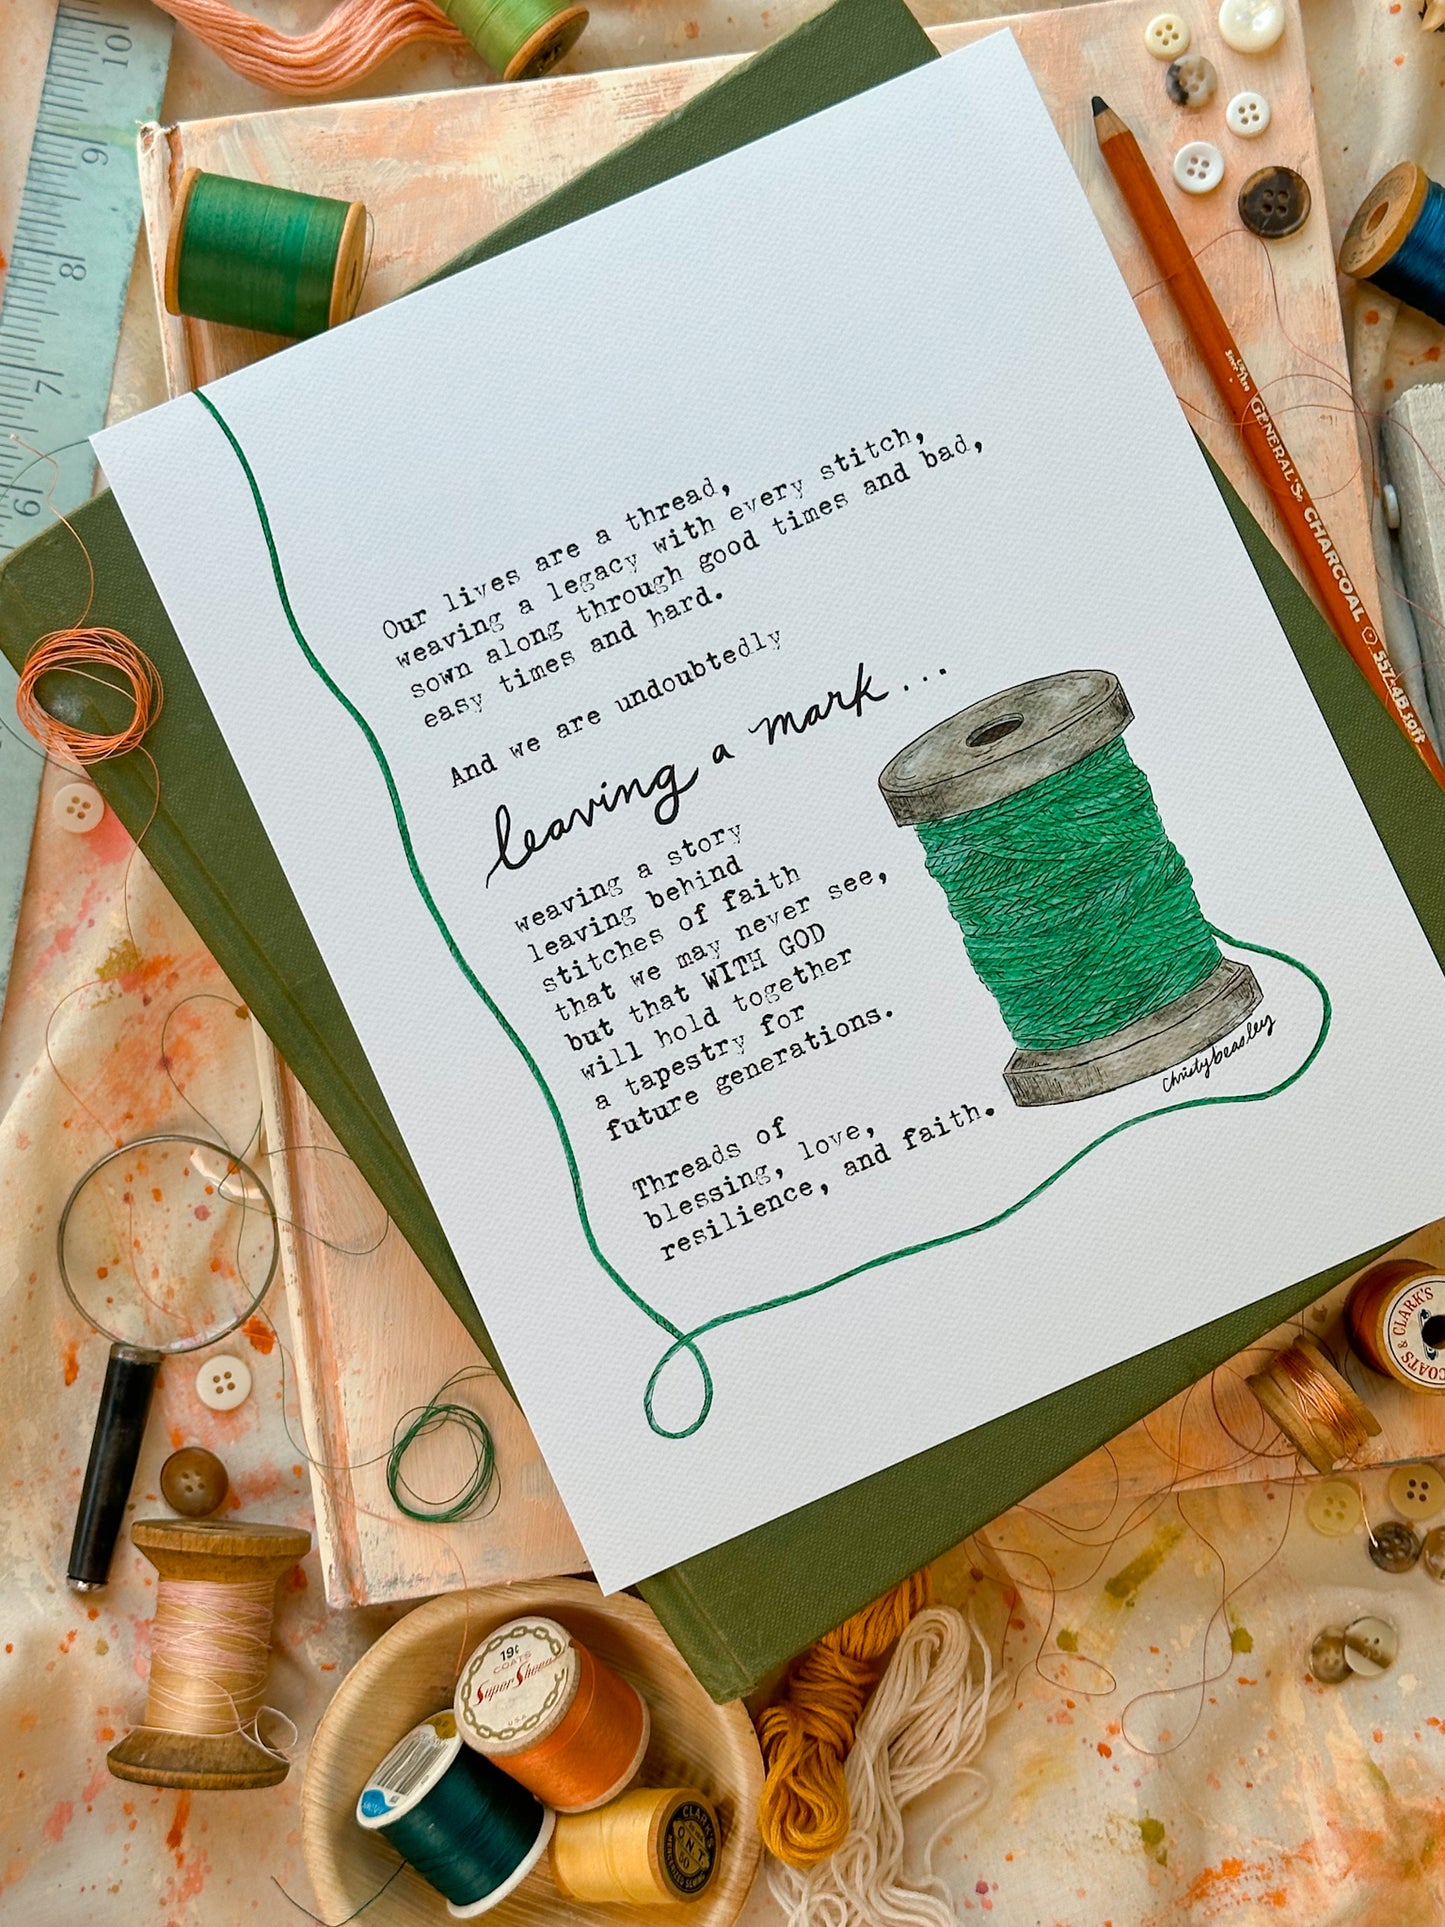 Our lives are a thread,
weaving a legacy with every stitch,
sown along through good times and bad,
easy times and hard.
And we are undoubtedly
leaving a mark...
weaving a story
leaving behind
stitches of faith
that we may never see,
but that WITH GOD
will hold together
a tapestry for
future generations.
Threads of
blessing, love,
resilience, and faith.
Christybeasley
10
9
8
7
6
USA
GENERAL'S® CHARCOAL 557-4B soft
COATS & CLARK'S
19¢
COATS
Super Sheen
U.S.A.
CLARK'S
O.N.T.
50
MERCERIZED SEWING